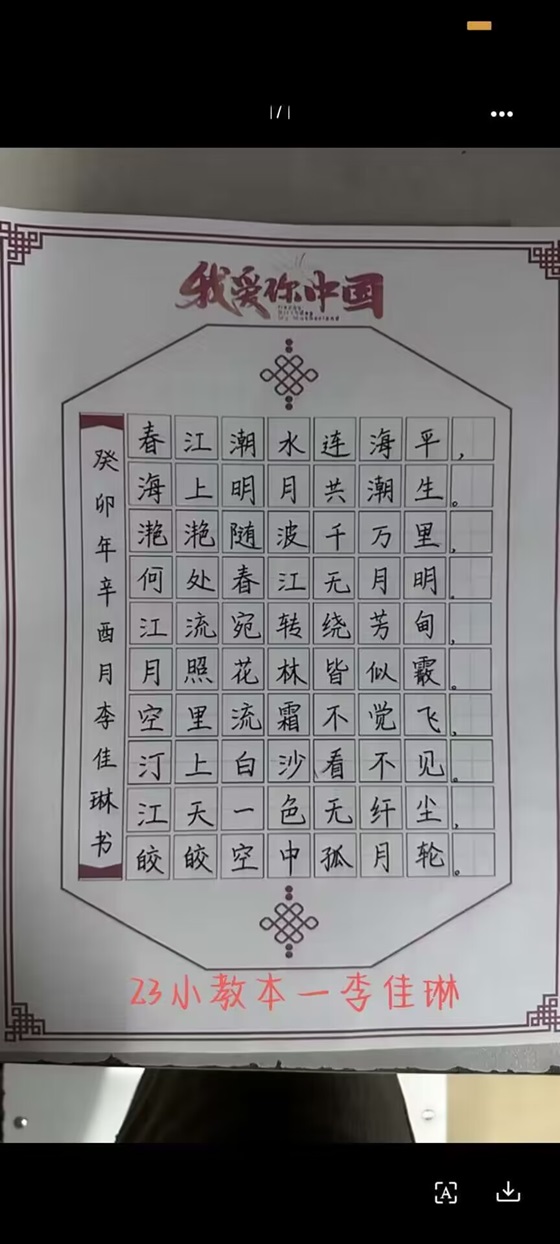 1/1
我爱你中国
Happy
Birthday
My Motherland
春江潮水连海平，
海上明月共潮生。
滟滟随波千万里，
何处春江无月明。
江流宛转绕芳甸，
月照花林皆似霰。
空里流霜不觉飞，
汀上白沙看不见。
江天一色无纤尘，
皎皎空中孤月轮。
癸卯年辛酉月李佳琳书
23小教本一李佳琳
A